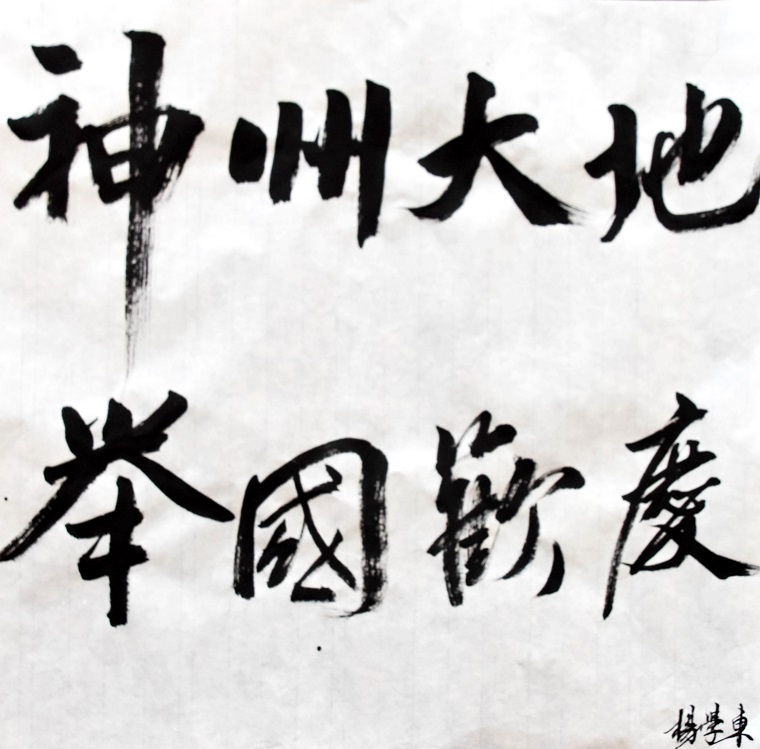 神州大地
举國歡慶
楊學東